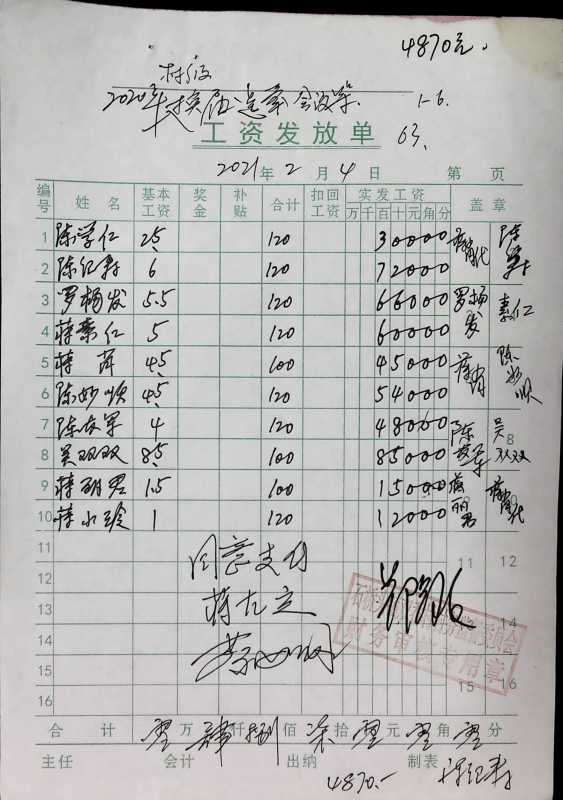 4870元.
村级
2020年换届选举会议等. 1-6.
工资发放单 63.
2021年2月4日 第 页
编号 姓名 基本工资 奖金 补贴 合计 扣回工资 实发工资 盖章
万 千 百 十 元 角 分
1 陈学仁 25 120 30000
2 陈红寿 6 120 72000
3 罗杨发 5.5 120 66000 罗杨发
4 蒋素仁 5 120 60000 素仁
5 蒋 4.5 100 45000
6 陈妙顺 4.5 120 54000 陈妙顺
7 陈友军 4 120 48000 陈友军
8 吴双双 8.5 100 85000 吴双双
9 蒋丽君 1.5 100 15000 蒋丽君
10 蒋水珍 1 120 12000
11 11 12
12
13 14
14
15 15 16
16
同意支付
财务审核专用章
合计 零万肆仟捌佰柒拾零元零角零分
主任 会计 出纳 制表 陈红寿
4870.-